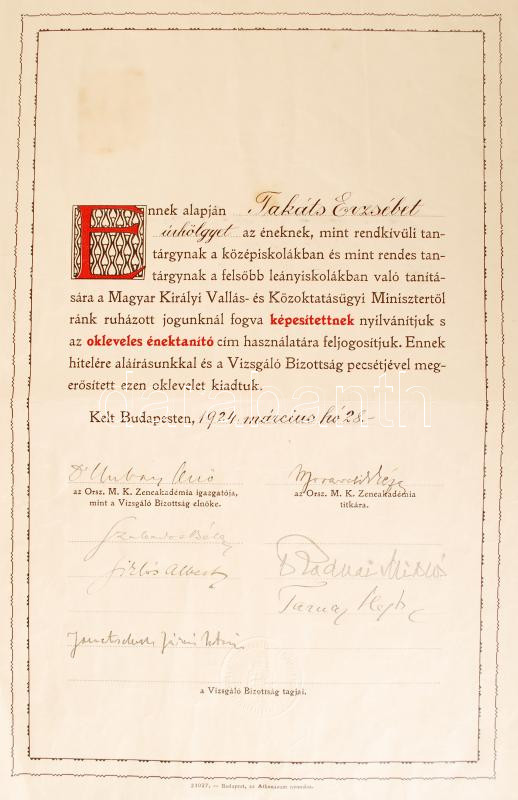 Ennek alapján Takáts Erzsébet
úrhölgyet az éneknek, mint rendkívüli tan-
tárgynak a középiskolákban és mint rendes tan-
tárgynak a felsőbb leányiskolákban való tanítá-
sára a Magyar Királyi Vallás- és Közoktatásügyi Minisztertől
ránk ruházott jogunknál fogva képesítettnek nyilvánítjuk s
az okleveles énektanító cím használatára feljogosítjuk. Ennek
hitelére aláírásunkkal és a Vizsgáló Bizottság pecsétjével meg-
erősített ezen oklevelet kiadtuk.
darabanth
Kelt Budapesten, 1924 március hó 28.-
Dr Hubay Jenő
az Orsz. M. K. Zeneakadémia igazgatója,
mint a Vizsgáló Bizottság elnöke.
Moravcsik Géza
az Orsz. M. K. Zeneakadémia
titkára.
Szabados Béla
Siklós Albert
Dr Radnai Miklós
Tarnay Alajos
a Vizsgáló Bizottság tagjai.
21027. — Budapest, az Athenaeum nyomdája.